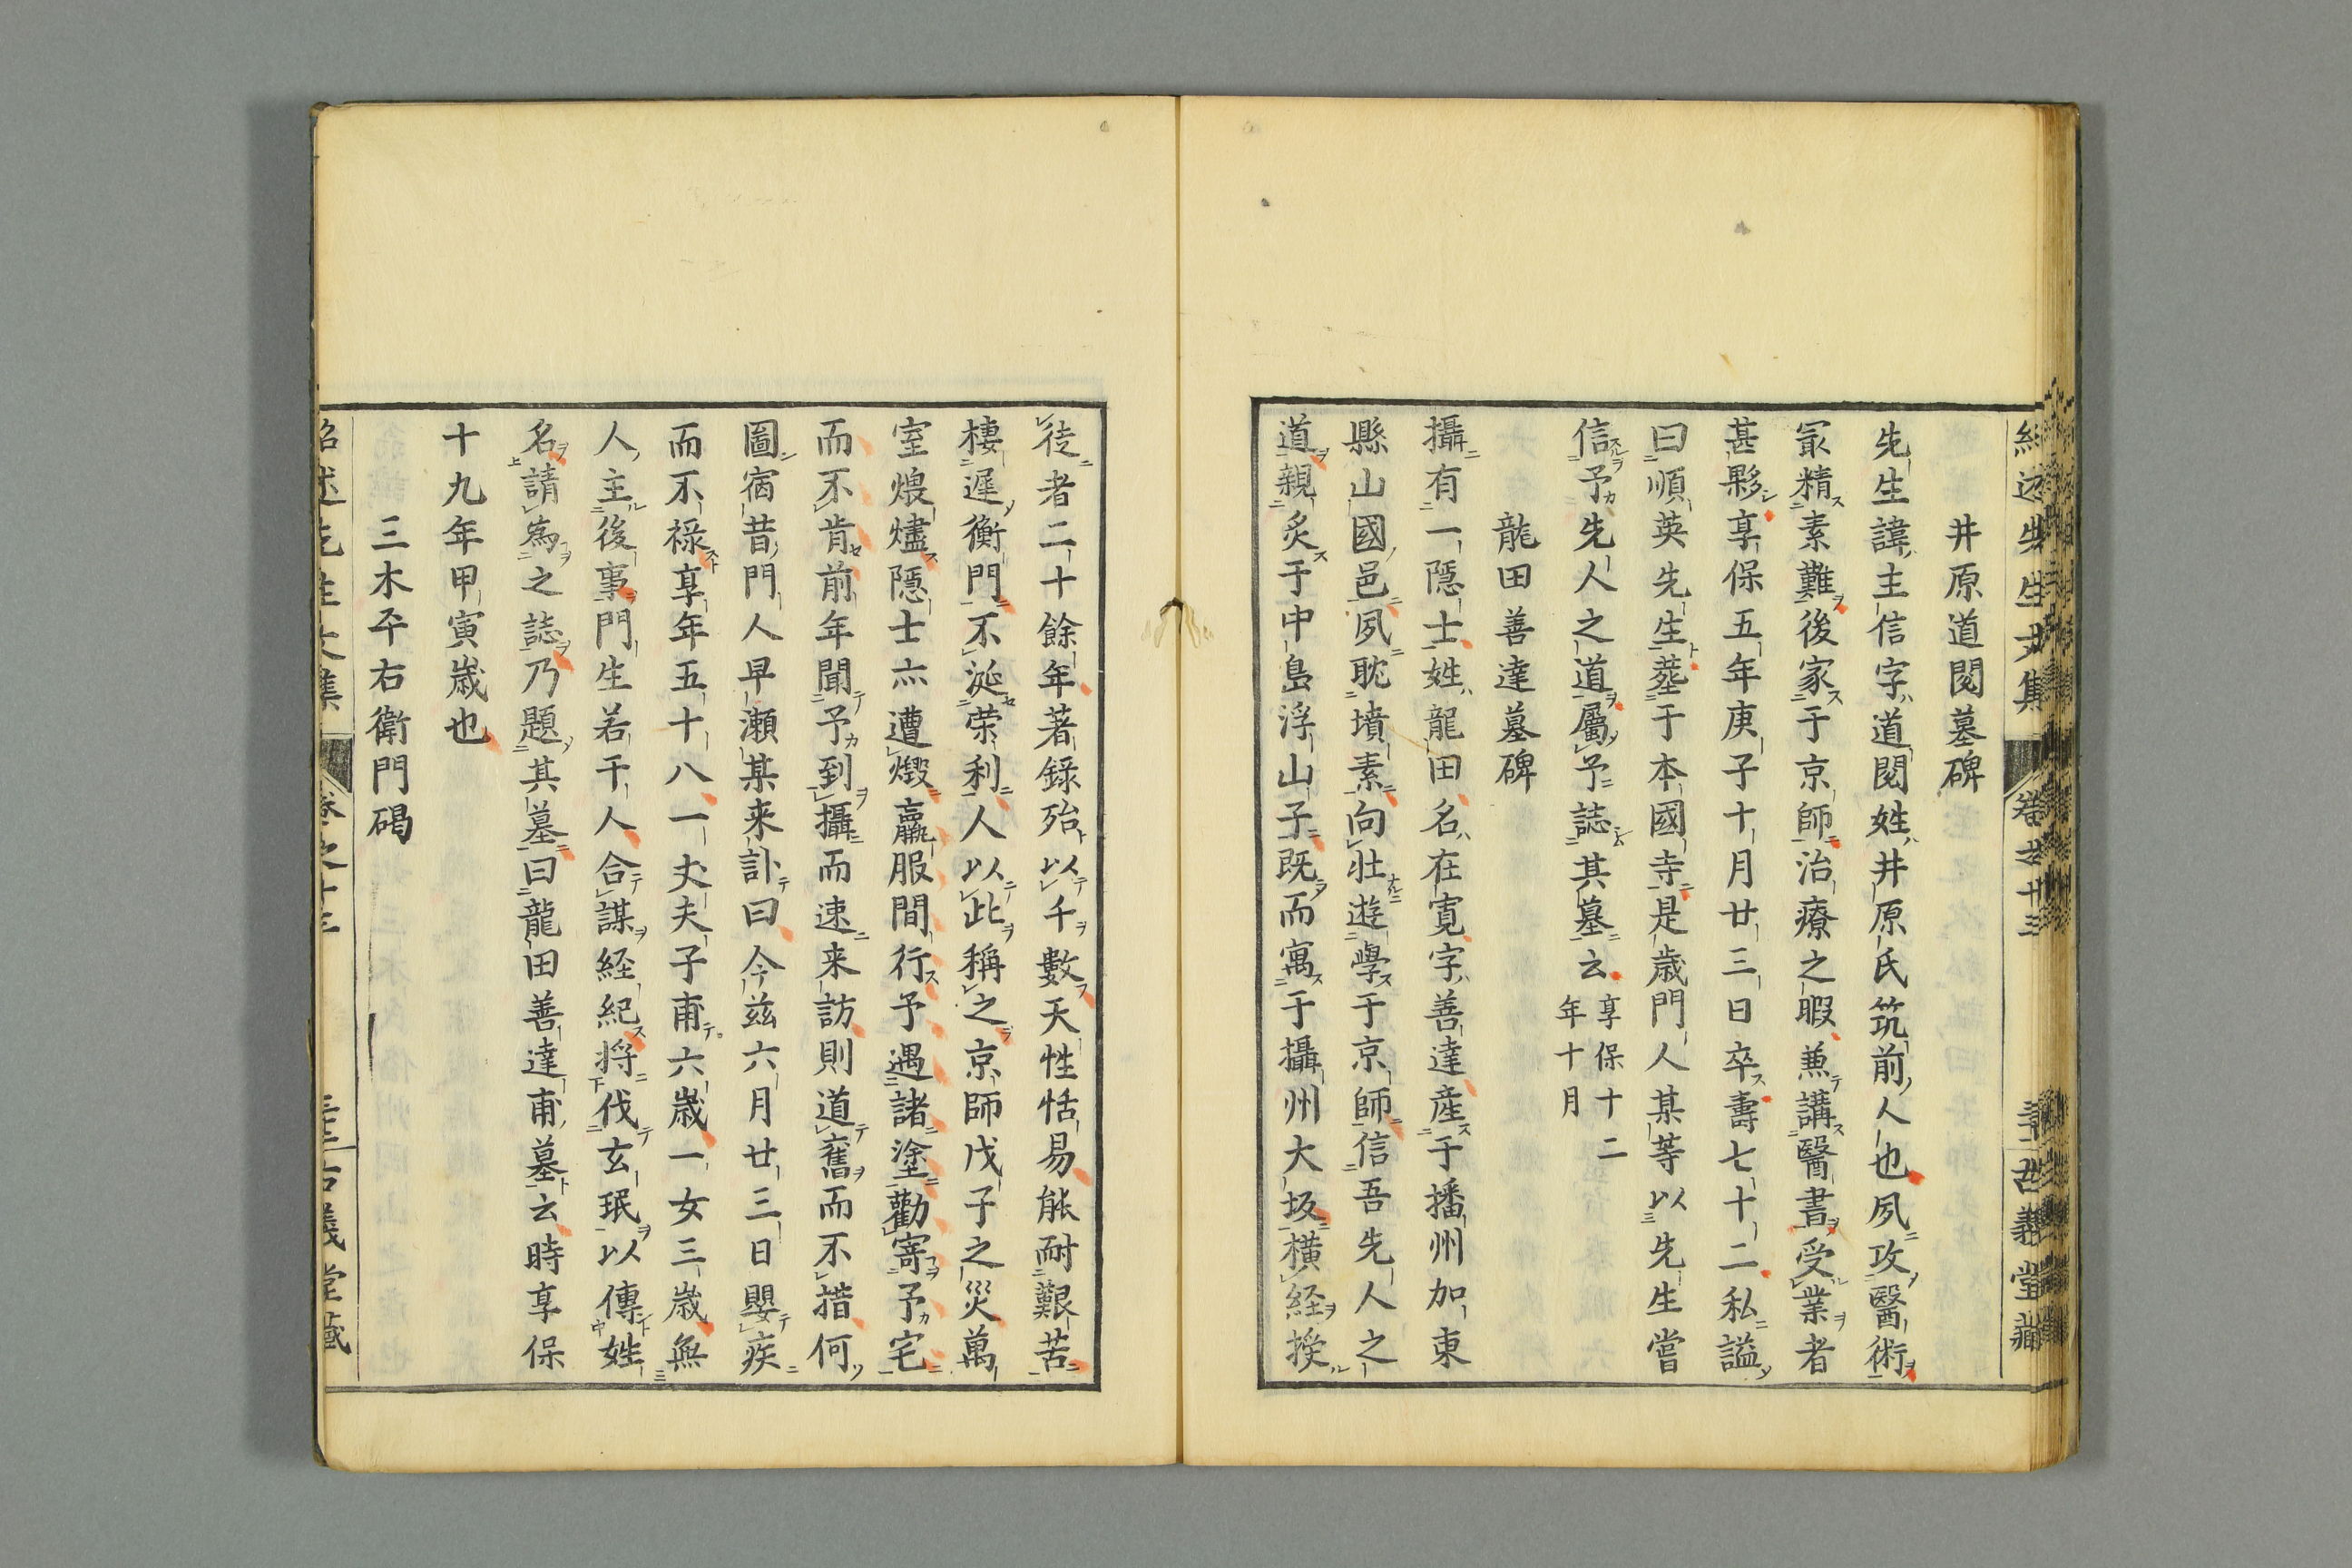 井原道閱墓碑
先生諱主信字道閱姓井原氏筑前人也夙攻醫術
冣精素難後家于京師治療之暇兼講醫書受業者
甚夥享保五年庚子十月廿三日卒壽七十二私謚
曰順英先生葬于本國寺是歳門人某等以先生嘗
信予先人之道屬予誌其墓云享保十二
年十月
龍田善達墓碑
攝有一隱士姓龍田名在寛字善達産于播州加東
縣山國邑夙耽墳素向壮遊學于京師信吾先人之
道親炙于中島浮山子既而寓于攝州大坂橫経授
徒者二十餘年著錄殆以千數天性恬易能耐艱苦
棲遲衡門不涎榮利人以此稱之京師戊子之災萬
室煨燼隱士亦遭燬羸服間行予遇諸塗勸寄予宅
而不肯前年聞予到攝而速来訪則道舊而不措何
圖宿昔門人早瀬某来訃曰今兹六月廿三日嬰疾
而不禄享年五十八一丈夫子甫六歳一女三歳無
人主後事門生若干人合謀経紀将伐玄珉以傳姓
名請為之誌乃題其墓曰龍田善達甫墓云時享保
十九年甲寅歳也
三木平右衛門碣
紹述先生文集 卷之十三 古義堂藏